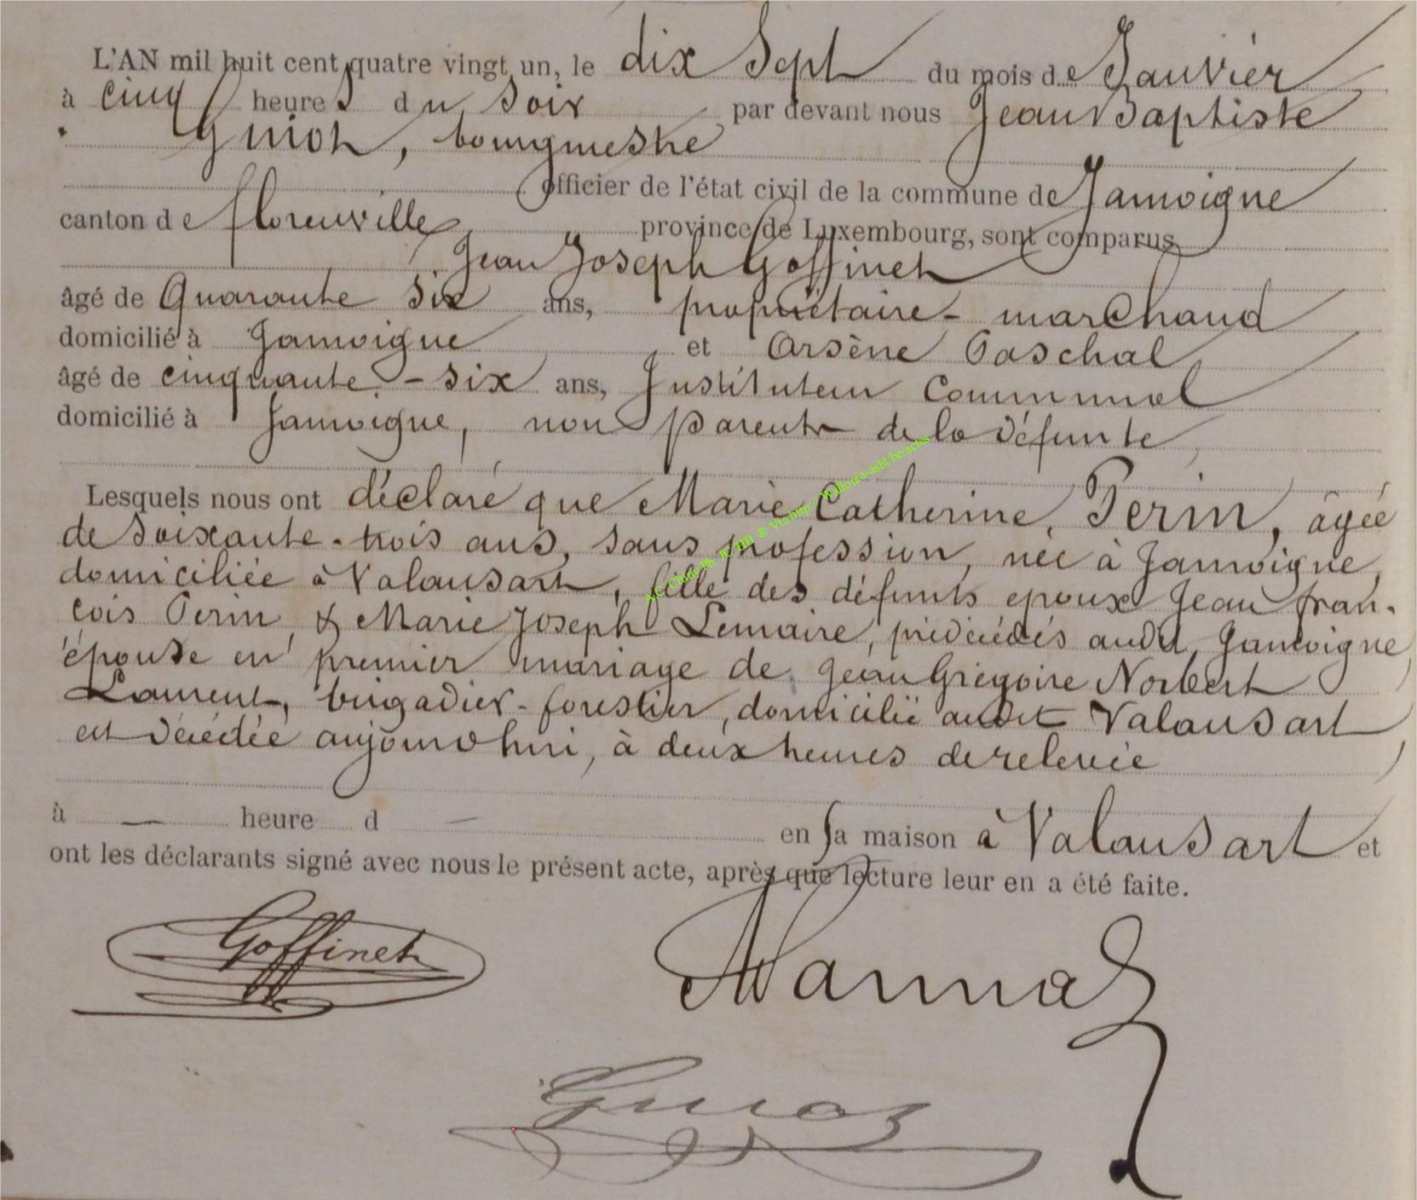 L'AN mil huit cent quatre vingt un, le dix Sept du mois de Janvier
à cinq heures du soir par devant nous Jean Baptiste
Guiot, bourgmestre
officier de l'état civil de la commune de Jamoigne
canton de florenville province de Luxembourg, sont comparus
Jean Joseph Goffinet
âgé de Quarante Six ans, propriétaire - marchand
domicilié à Jamoigne et Arsène Paschal
âgé de cinquante - six ans, Instituteur Communal
domicilié à Jamoigne, non parents de la défunte,
Lesquels nous ont déclaré que Marie Catherine Perin, âgée
de soixante-trois ans, sans profession, née à Jamoigne,
domiciliée à Valansart, fille des défunts époux Jean fran-
çois Perin & Marie Joseph Lemaire, prédécédés audit Jamoigne
épouse en premier mariage de Jean Grégoire Norbert
Laurent, brigadier-forestier, domicilié audit Valansart
est décédée aujourd'hui, à deux heures de relevée
à — heure d — en sa maison à Valansart et
ont les déclarants signé avec nous le présent acte, après que lecture leur en a été faite.
Goffinet
Guiot